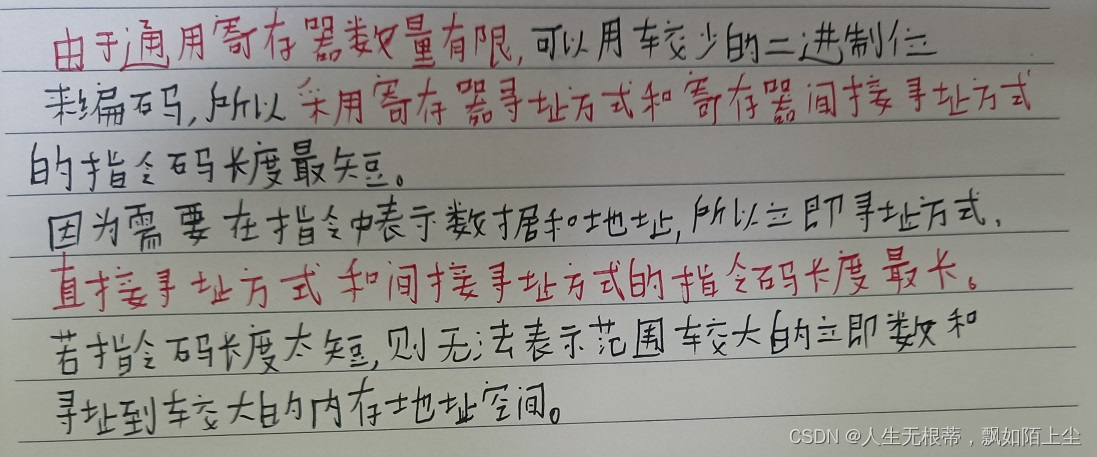 由于通用寄存器数量有限,可以用较少的二进制位
来编码,所以采用寄存器寻址方式和寄存器间接寻址方式
的指令码长度最短。
因为需要在指令中表示数据和地址,所以立即寻址方式、
直接寻址方式和间接寻址方式的指令码长度最长。
若指令码长度太短,则无法表示范围较大的立即数和
寻址到较大的内存地址空间。
CSDN @人生无根蒂，飘如陌上尘